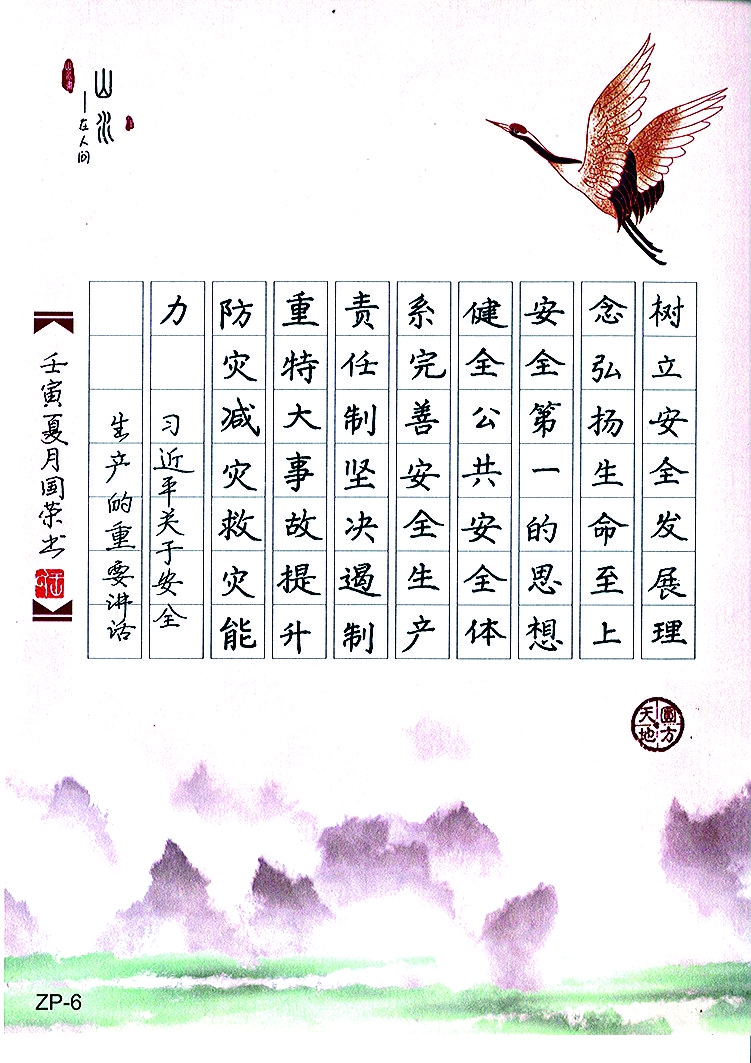 树立安全发展理
念弘扬生命至上
安全第一的思想
健全公共安全体
系完善安全生产
责任制坚决遏制
重特大事故提升
防灾减灾救灾能
力
习近平关于安全
生产的重要讲话
壬寅夏月国荣书
山水
在人间
天圆地方
ZP-6